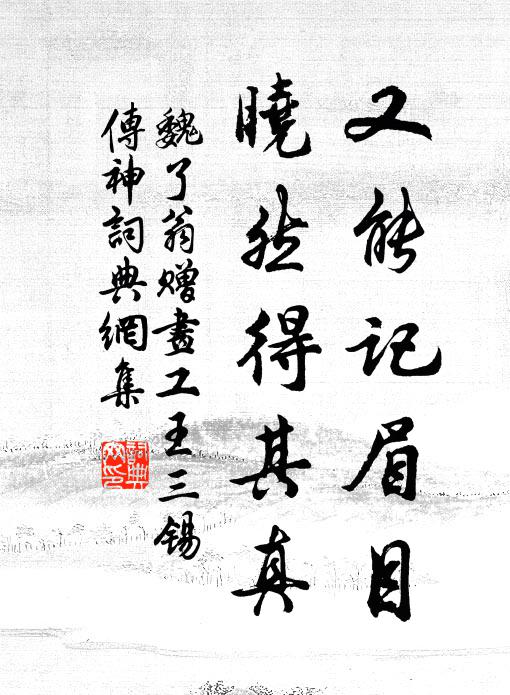 又能记眉目
曉然得其真
魏了翁贈畫工王三錫
傳神詞典網集